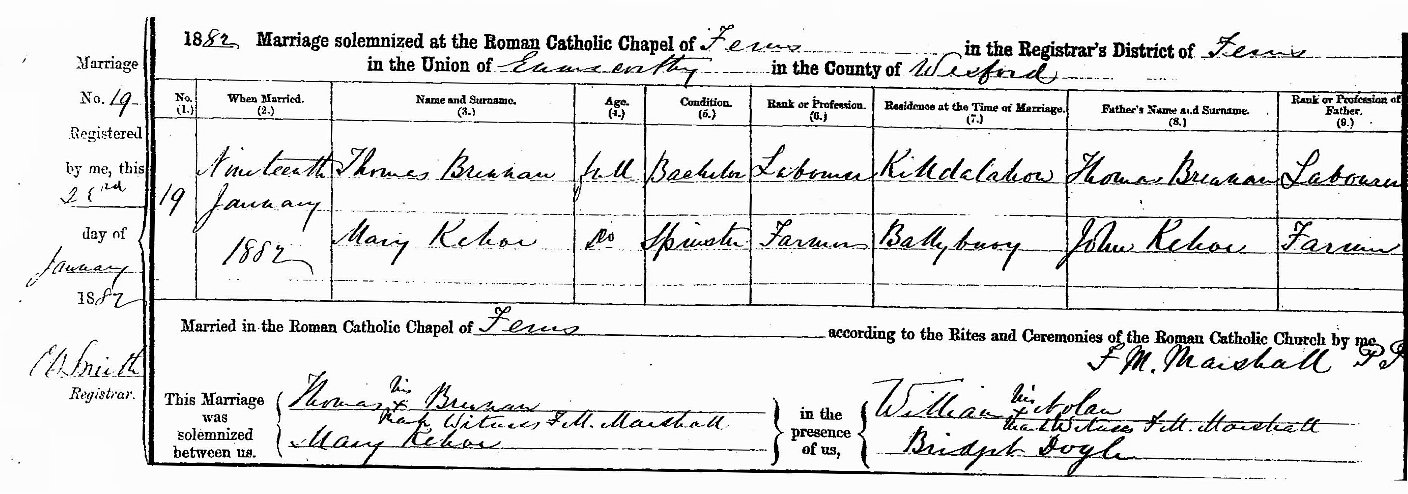 1882 Marriage solemnized at the Roman Catholic Chapel of Ferns in the Registrar's District of Ferns
in the Union of Enniscorthy in the County of Wexford
No. (1.) When Married. (2.) Name and Surname. (3.) Age. (4.) Condition. (5.) Rank or Profession. (6.) Residence at the Time of Marriage. (7.) Father's Name and Surname. (8.) Rank or Profession of Father. (9.)
19 Nineteenth January 1882
Thomas Brennan full Bachelor Labourer Thomas Brennan Labourer
Mary Kehoe Do Spinster Farmer Ballybuoy John Kehoe Farmer
Married in the Roman Catholic Chapel of Ferns according to the Rites and Ceremonies of the Roman Catholic Church by me,
F M. Marshall PP
This Marriage was solemnized between us.
Thomas his x mark Brennan
Witness F. M. Marshall
Mary Kehoe
in the presence of us,
William his x mark Nolan
Witness F. M. Marshall
Bridget Doyle
Marriage
No. 19
Registered
by me, this
23rd
day of
January
1882
Smith
Registrar.